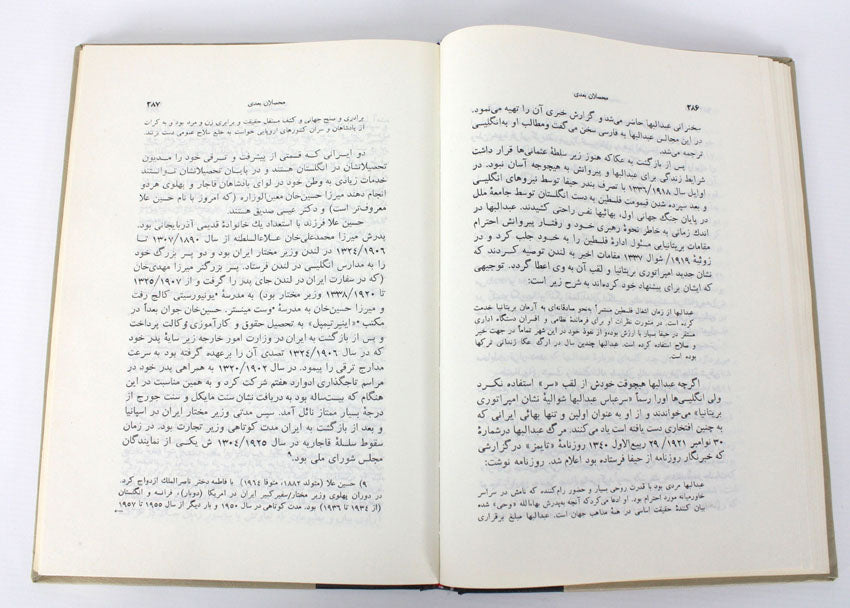 ۳۸۶
محصلان بعدی
سخنرانی عبدالبها حاضر می‌شد و گزارش خبری آن را تهیه می‌نمود.
در این مجالس عبدالبها به فارسی سخن می‌گفت و مطالب او به انگلیسی
ترجمه می‌شد.
پس از بازگشت به عکا که هنوز زیر سلطهٔ عثمانی‌ها قرار داشت
شرایط زندگی برای عبدالبها و پیروانش به هیچوجه آسان نبود. در
اوایل سال ۱۹۱۸/۱۳۳۶ با تصرف بندر حیفا توسط نیروهای انگلیسی
و بعد سپرده شدن قیمومت فلسطین به دست انگلستان توسط جامعهٔ ملل
در پایان جنگ جهانی اول، بهائیها نفس راحتی کشیدند. عبدالبها در
اندک زمانی به خاطر نحوهٔ رهبری خود و رفتار پیروانش احترام
مقامات بریتانیایی مسئول ادارهٔ فلسطین را به خود جلب کرد و در
ژوئیهٔ ۱۹۱۹/ شوال ۱۳۳۷ مقامات اخیر به لندن توصیه کردند که
نشان جدید امپراتوری بریتانیا و لقب آن به وی اعطا گردد. توجیهی
که ایشان برای پیشنهاد خود کرده‌اند به شرح زیر است:
عبدالبها از زمان اشغال فلسطین مستمراً به نحو صادقانه‌ای به آرمان بریتانیا خدمت
کرده است. در مشورت نظرات او برای فرماندهٔ نظامی و افسران دستگاه اداری
مستقر در حیفا بسیار با ارزش بوده و از نفوذ خود در این شهر تماماً در جهت خیر
و صلاح استفاده کرده است. عبدالبها چندین سال در ارگ عکا زندانی ترکها
بوده است.
اگرچه عبدالبها هیچوقت خودش از لقب «سر» استفاده نکرد
ولی انگلیسی‌ها او را رسماً «سرعباس عبدالبها شوالیهٔ نشان امپراتوری
بریتانیا» می‌خواندند و از او به عنوان اولین و تنها بهائی ایرانی که
به چنین افتخاری دست یافته است یاد می‌کنند. مرگ عبدالبها در شمارهٔ
۳۰ نوامبر ۱۹۲۱/ ۲۹ ربیع‌الاول ۱۳۴۰ روزنامهٔ «تایمز» در گزارشی
که خبرنگار روزنامه از حیفا فرستاده بود اعلام شد. روزنامه نوشت:
عبدالبها مردی بود با قدرت روحی بسیار و حضور رام‌کننده که نامش در سراسر
خاورمیانه مورد احترام بود. او ادعا می‌کرد که آنچه به پدرش بهاءالله «وحی» شده
بیان کنندهٔ حقیقت اساسی در همهٔ مذاهب جهان است. عبدالبها مبلغ برقراری
محصلان بعدی
۳۸۷
برادری و صلح جهانی و کشف مستقل حقیقت و برابری زن و مرد بود و به کرات
از پادشاهان و سران کشورهای اروپایی خواست به خلع سلاح عمومی دست زنند.
دو ایرانی که قسمتی از پیشرفت و ترقی خود را مدیون
تحصیلاتشان در انگلستان هستند و در پایان تحصیلاتشان توانستند
خدمات زیادی به وطن خود در لوای پادشاهان قاجار و پهلوی هردو
انجام دهند میرزا حسین‌خان معین‌الوزاره (که امروز با نام حسین علا
معروف‌تر است) و دکتر عیسی صدیق هستند.
حسین علا فرزند با استعداد یک خانوادهٔ قدیمی آذربایجانی بود.
پدرش میرزا محمدعلی‌خان علاءالسلطنه از سال ۱۸۹۰/۱۳۰۷ تا
۱۹۰۶/۱۳۲۴ در لندن وزیر مختار ایران بود و دو پسر بزرگ خود
را به مدارس انگلیسی در لندن فرستاد. پسر بزرگتر میرزا مهدی‌خان
(که در سفارت ایران در لندن جای پدر را گرفت و از ۱۹۰۷/۱۳۲۵
تا ۱۹۲۰/۱۳۳۸ وزیر مختار بود) به مدرسهٔ «یونیورسیتی کالج» رفت
و میرزا حسین خان به مدرسهٔ «وست مینستر». حسین‌خان جوان بعداً در
مکتب «اینرتیمپل» به تحصیل حقوق و کارآموزی وکالت پرداخت
و پس از بازگشت به ایران در وزارت امور خارجه زیر سایهٔ پدر خود
که در سال ۱۹۰۶/۱۳۲۴ تصدی آن را برعهده گرفته بود به سرعت
مدارج ترقی را پیمود. در سال ۱۹۰۲/۱۳۲۰ به همراهی پدر خود در
مراسم تاجگذاری ادوارد هفتم شرکت کرد و به همین مناسبت در این
هنگام که بیست‌ساله بود به دریافت نشان سنت مایکل و سنت جورج از
درجهٔ بسیار ممتاز نائل آمد. سپس مدتی وزیر مختار ایران در اسپانیا
و بعد از بازگشت به ایران مدت کوتاهی وزیر تجارت بود. در زمان
سقوط سلسلهٔ قاجاریه در سال ۱۹۲۵/۱۳۰۴ ش یکی از نمایندگان
مجلس شورای ملی بود.۹
۹) حسین علا (متولد ۱۸۸۲، متوفا ۱۹۶۴) با فاطمه دختر ناصرالملک ازدواج کرد.
در دوران پهلوی وزیر مختار/سفیرکبیر ایران در امریکا (دوبار)، فرانسه و انگلستان
(از ۱۹۳۴ تا ۱۹۳۶) بود. مدت کوتاهی در سال ۱۹۵۰ و بار دیگر از سال ۱۹۵۵ تا ۱۹۵۷